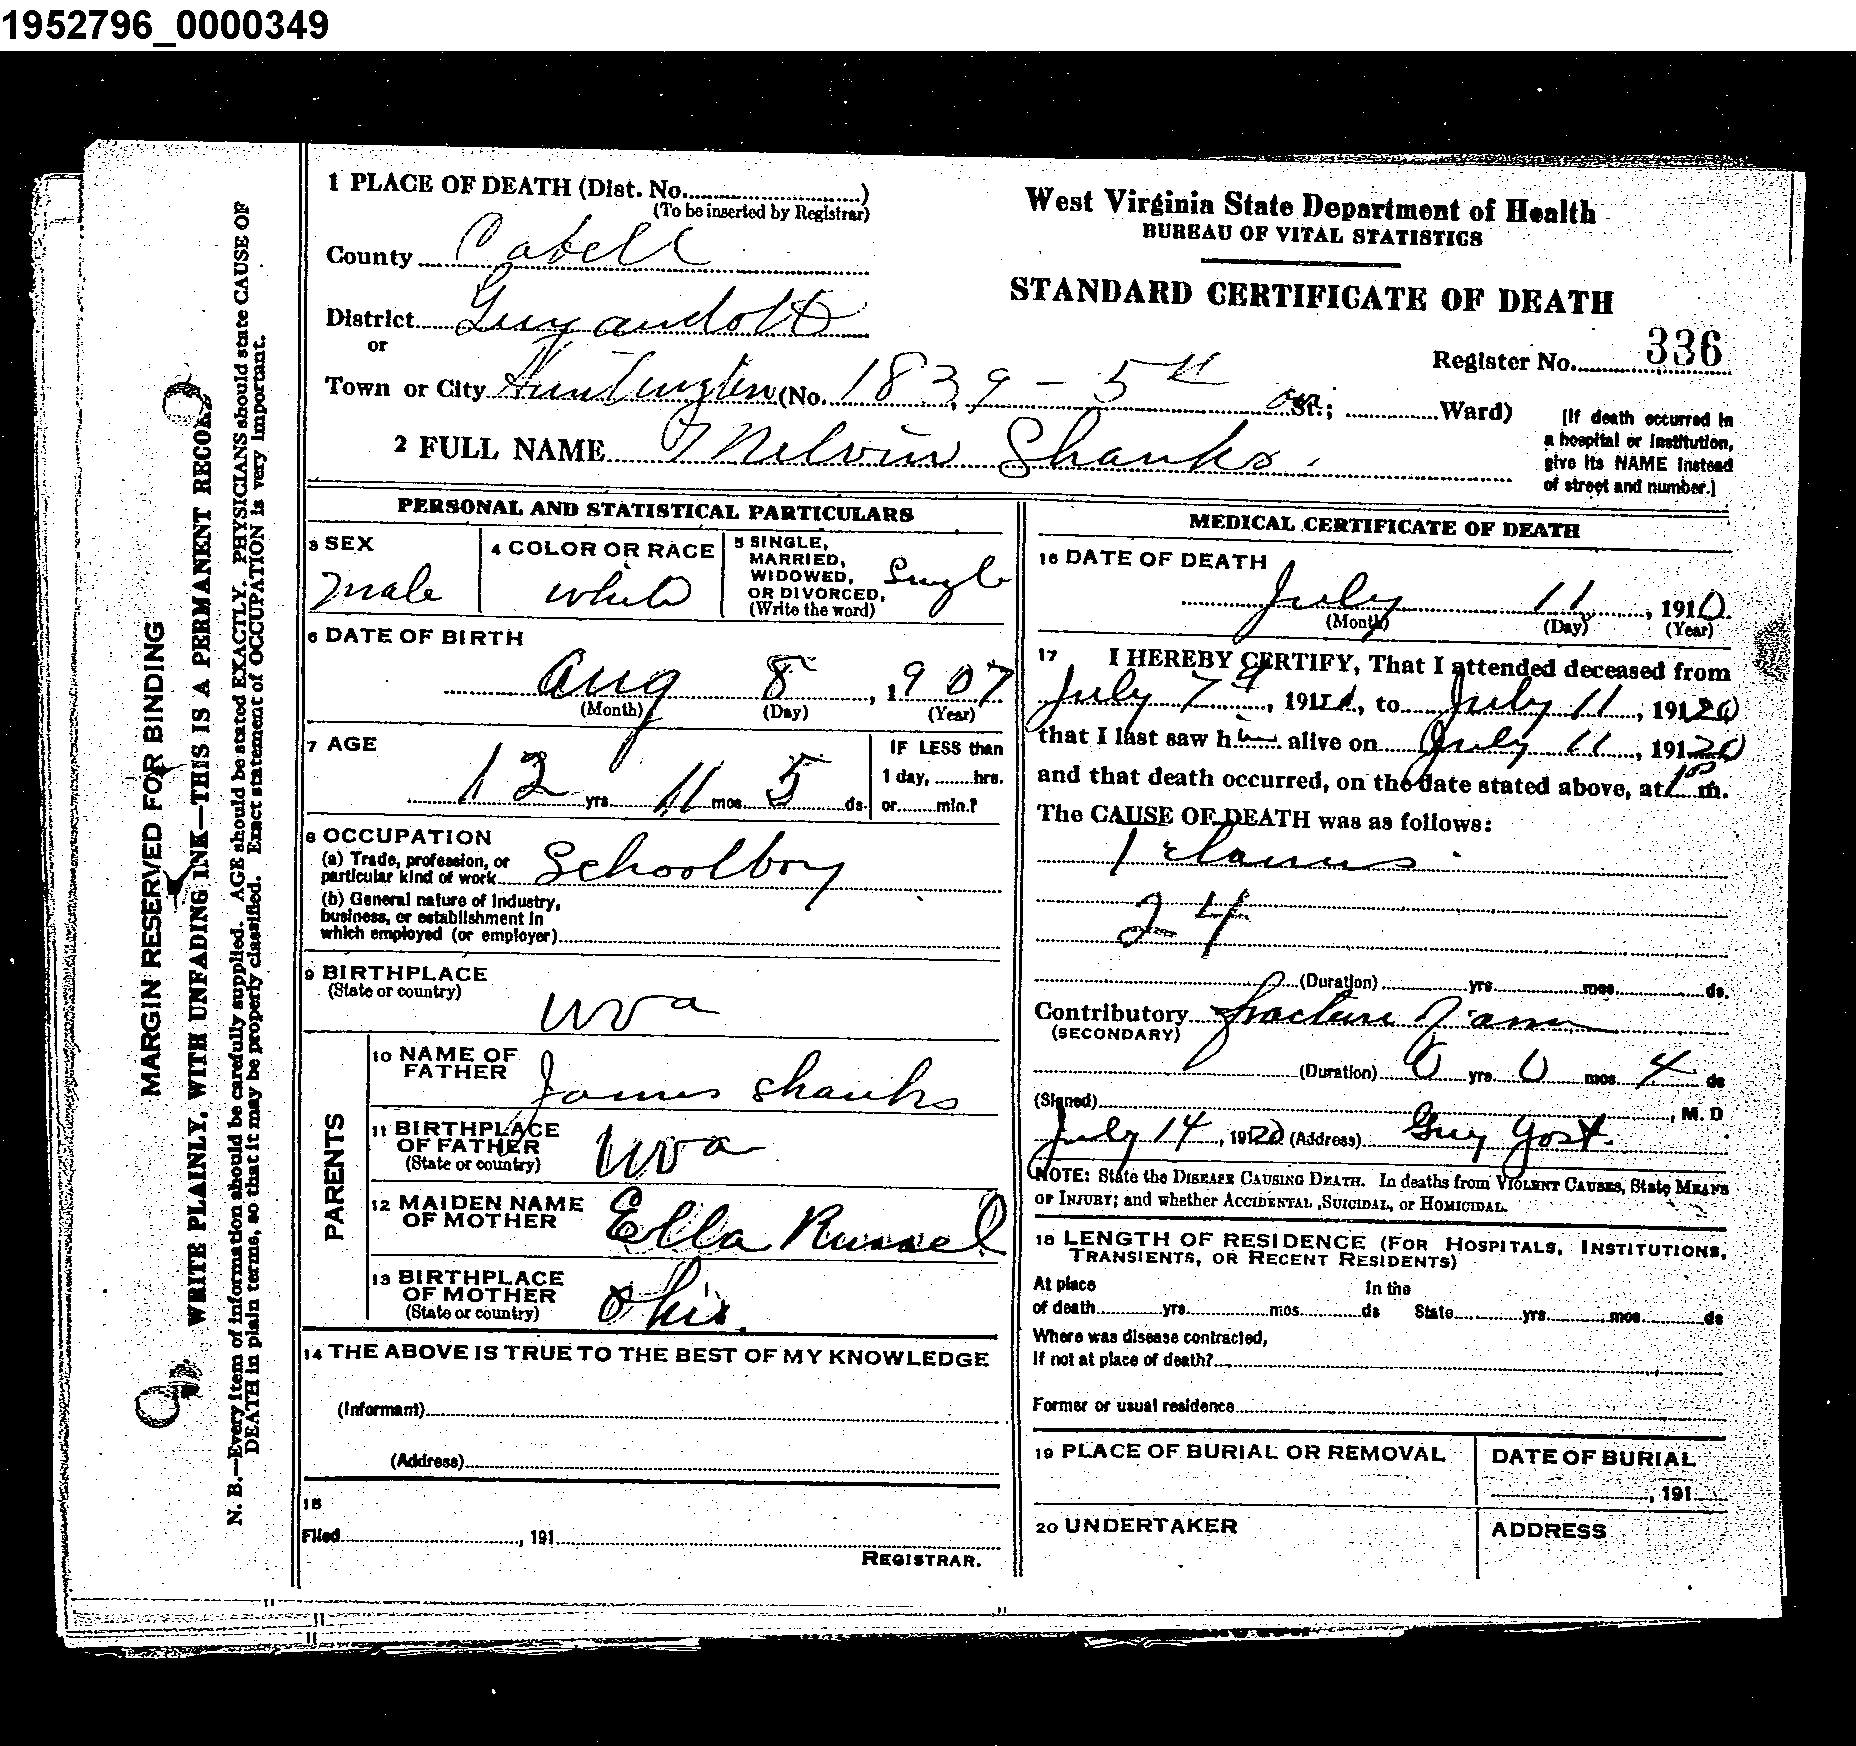 1952796_0000349
1 PLACE OF DEATH (Dist. No. )
(To be inserted by Registrar)
County Cabell
District Guyandott
or
Town or City Huntington (No. 1839 - 5th av St.; Ward)
2 FULL NAME Melvin Shanks.
West Virginia State Department of Health
BUREAU OF VITAL STATISTICS
STANDARD CERTIFICATE OF DEATH
Register No. 336
[If death occurred in
a hospital or institution,
give its NAME instead
of street and number.]
PERSONAL AND STATISTICAL PARTICULARS
3 SEX
male
4 COLOR OR RACE
white
5 SINGLE,
MARRIED,
WIDOWED,
OR DIVORCED,
(Write the word)
Single
6 DATE OF BIRTH
Aug 8, 1907
(Month) (Day) (Year)
7 AGE
12 yrs. 11 mos. 5 ds.
IF LESS than
1 day, hrs.
or min.?
8 OCCUPATION
(a) Trade, profession, or
particular kind of work Schoolboy
(b) General nature of Industry,
business, or establishment in
which employed (or employer)
9 BIRTHPLACE
(State or country)
W Va
PARENTS
10 NAME OF
FATHER
James Shanks
11 BIRTHPLACE
OF FATHER
(State or country)
W Va
12 MAIDEN NAME
OF MOTHER
Ella Russel
13 BIRTHPLACE
OF MOTHER
(State or country)
Ohio.
14 THE ABOVE IS TRUE TO THE BEST OF MY KNOWLEDGE
(Informant)
(Address)
15
Filed , 191
REGISTRAR.
MEDICAL CERTIFICATE OF DEATH
16 DATE OF DEATH
July 11, 1910
(Month) (Day) (Year)
17 I HEREBY CERTIFY, That I attended deceased from
July 7th, 191 , to July 11, 19120
that I last saw him alive on July 11, 19120
and that death occurred, on the date stated above, at m.
The CAUSE OF DEATH was as follows:
Tetanus.
24
(Duration) yrs mos ds.
Contributory fracture arm
(SECONDARY)
(Duration) 0 yrs 0 mos 4 ds
(Signed) , M. D
July 14, 1920 (Address) Guy Yost.
NOTE: State the DISEASE CAUSING DEATH. In deaths from VIOLENT CAUSES, State MEANS
OF INJURY; and whether ACCIDENTAL, SUICIDAL, or HOMICIDAL.
18 LENGTH OF RESIDENCE (FOR HOSPITALS, INSTITUTIONS,
TRANSIENTS, OR RECENT RESIDENTS)
At place In the
of death yrs. mos. ds State yrs. mos. ds
Where was disease contracted,
If not at place of death?
Former or usual residence
19 PLACE OF BURIAL OR REMOVAL
DATE OF BURIAL
, 191
20 UNDERTAKER
ADDRESS
MARGIN RESERVED FOR BINDING
WRITE PLAINLY, WITH UNFADING INK—THIS IS A PERMANENT RECORD
N. B.—Every item of information should be carefully supplied. AGE should be stated EXACTLY. PHYSICIANS should state CAUSE OF
DEATH in plain terms, so that it may be properly classified. Exact statement of OCCUPATION is very important.